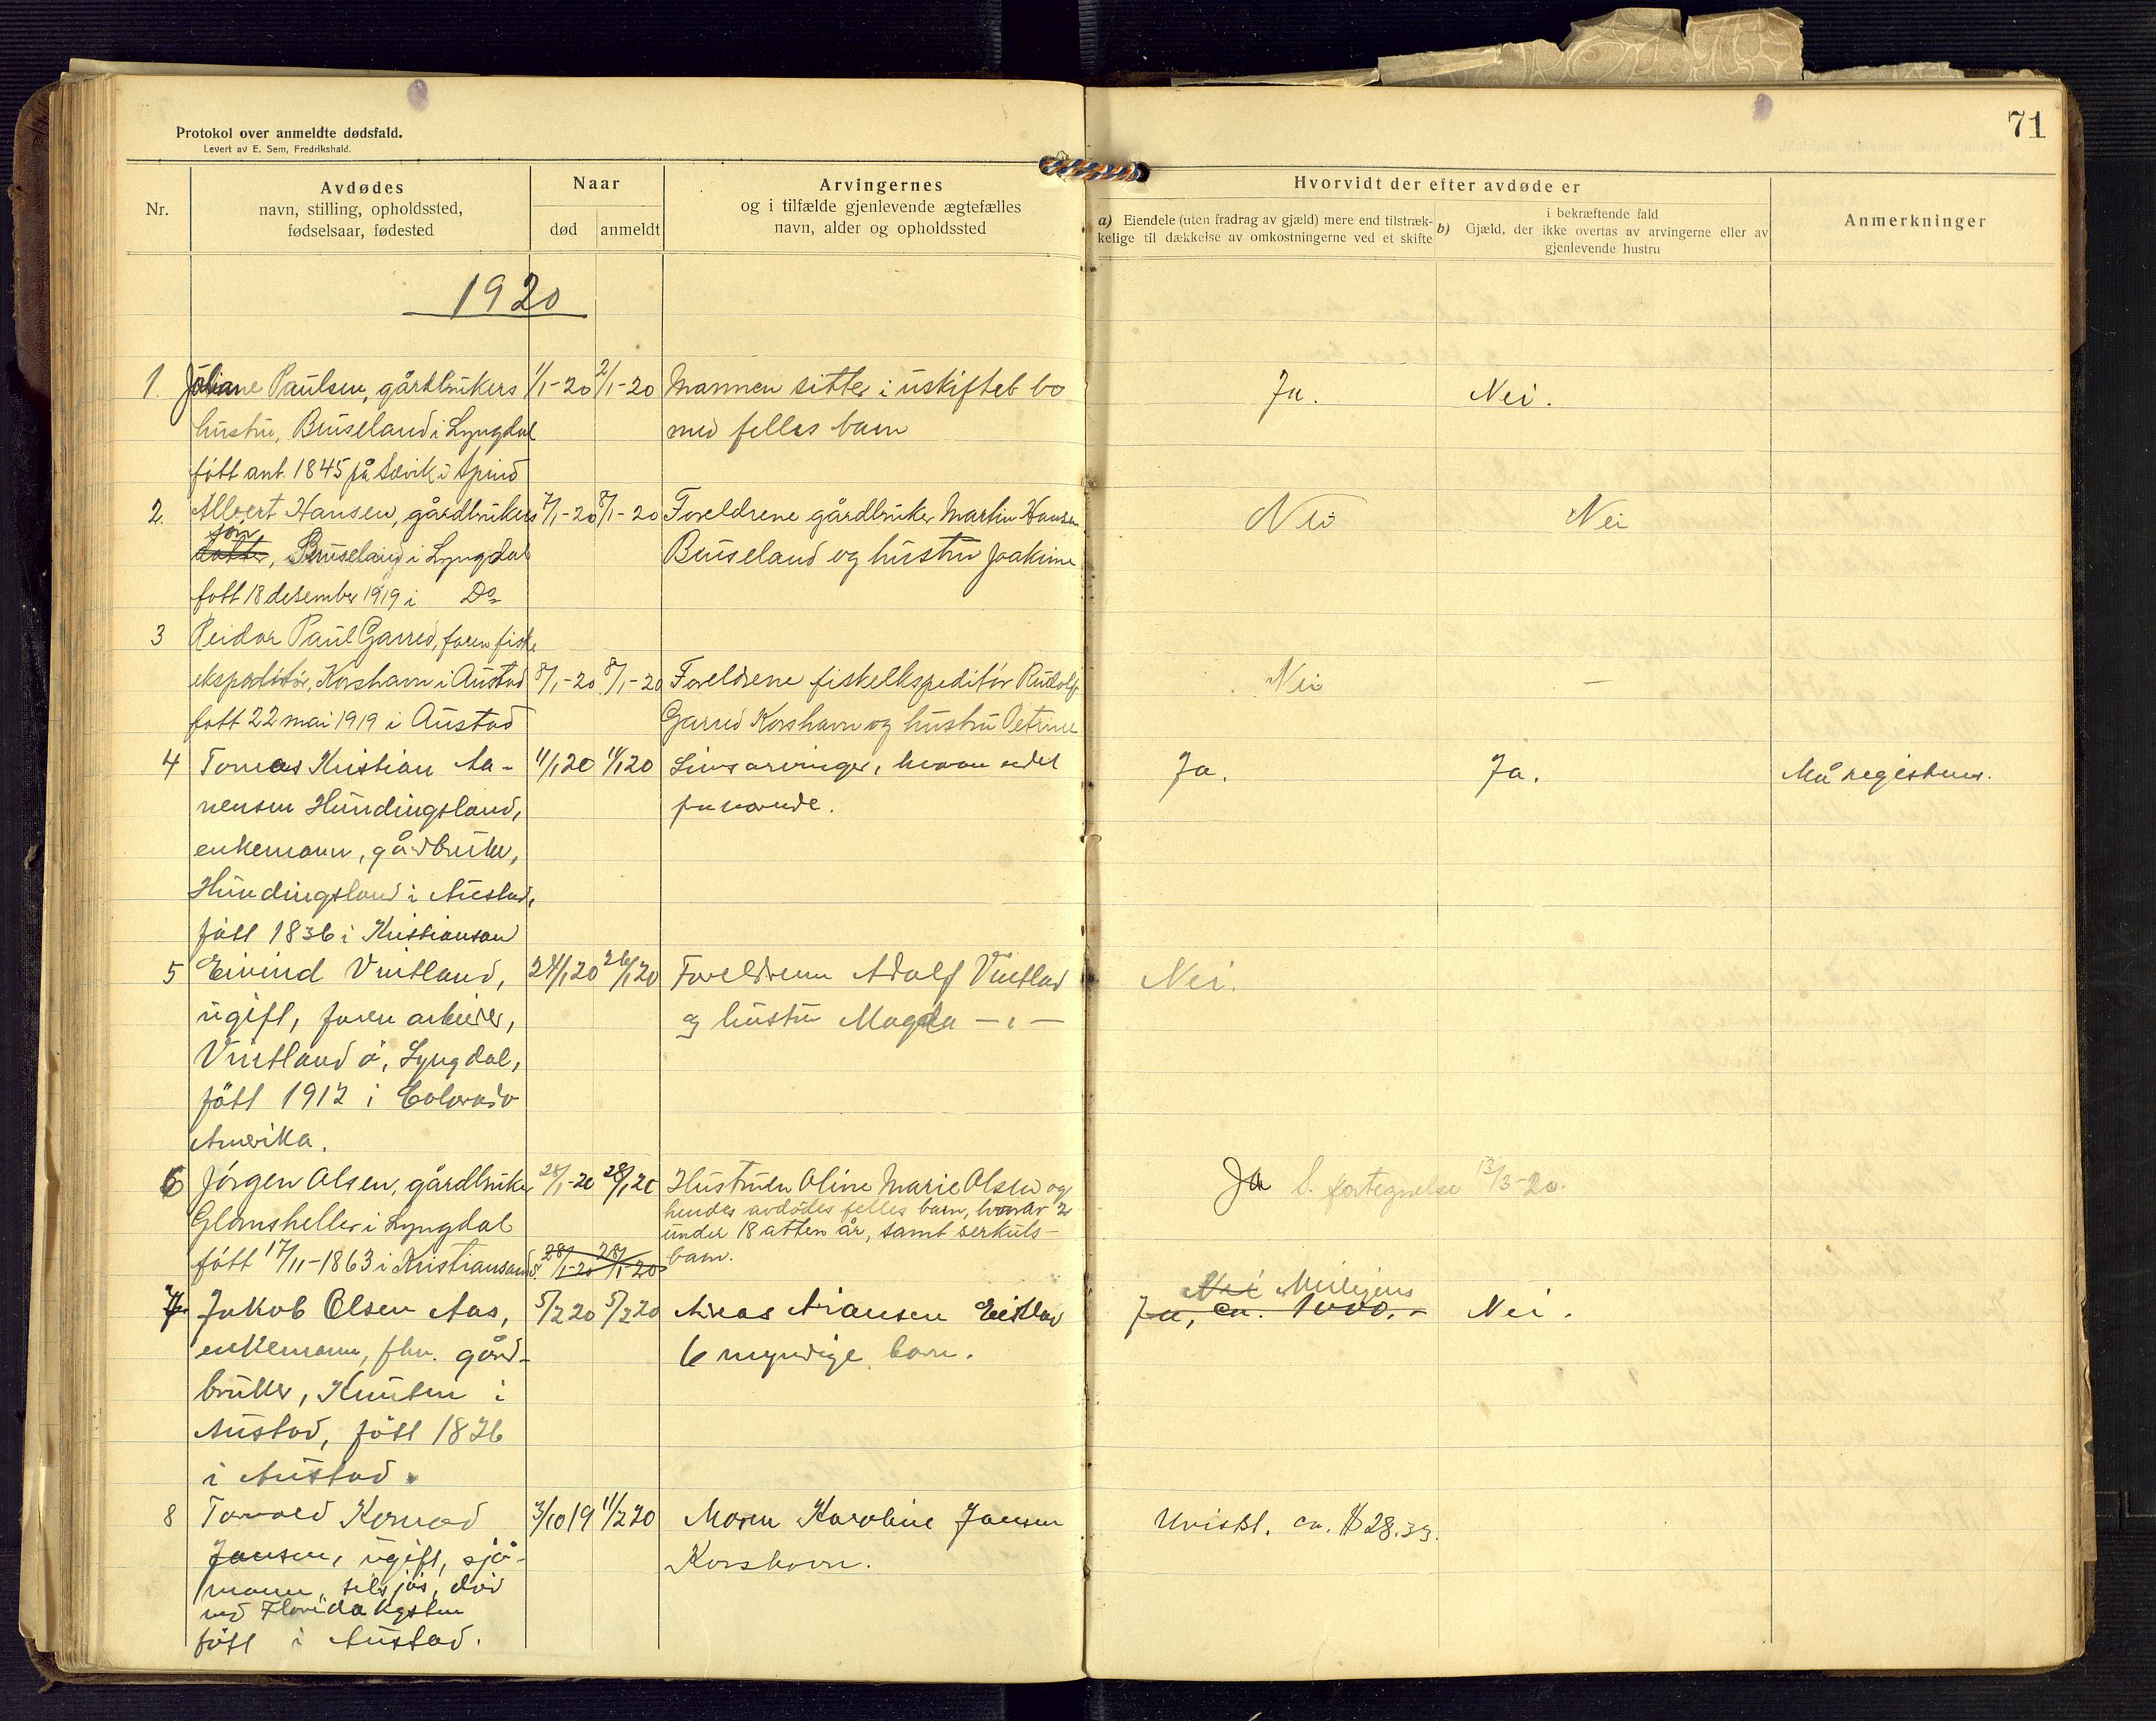 71
Protokol over anmeldte dødsfald.
Levert av E. Sem, Fredrikshald.
Nr.
Avdødes
navn, stilling, opholdssted,
fødselsaar, fødested
Naar
død
anmeldt
Arvingernes
og i tilfælde gjenlevende ægtefælles
navn, alder og opholdssted
Hvorvidt der efter avdøde er
a) Eiendele (uten fradrag av gjæld) mere end tilstræk-
kelige til dækkelse av omkostningerne ved et skifte
i bekræftende fald
b) Gjæld, der ikke overtas av arvingerne eller av
gjenlevende hustru
Anmerkninger
1920
1. Paulsen, gårdbrukers 1/1-20 2/1-20 Mannen sitter i uskiftet bo Ja. Nei.
hustru, Buseland i Lyngdal med felles barn
født ant. 1845 på Sævik i Spind
2. Albert Hansen, gårdbrukers 7/1-20 8/1-20 Foreldrene gårdbruker Martin Hansen Nei Nei
søn
datter, Buseland i Lyngdal Buseland og hustru Joakime
født 18 desember 1919 i Do
3 Reidar Paul Garred, faren fiske
ekspeditør, Korshavn i Austad 8/1-20 8/1-20 Foreldrene fiskeekspeditør Rudolf Nei —
født 22 mai 1919 i Austad Garred Korshavn og hustru Petrine
4 Tomas Kristian Aa- 11/1 20 14/1 20 Livsarvinger, hvorav endel Ja. Ja. Må registreres.
nensen Hundingsland, fraværende.
enkemann, gårdbruker,
Hundingsland i Austad,
født 1836 i Kristiansand
5 Eivind Vintland, 24/1 20 26/1 20 Foreldrene Adolf Vintland Nei.
ugift, faren arbeider, og hustru Magda — " —
Vintland ø, Lyngdal,
født 1912 i Colorado
Amerika.
6 Jørgen Olsen, gårdbruker 28/1-20 28/1 20 Hustruen Oline Marie Olsen og Ja S. fortegnelse 13/3-20.
Glomsheller i Lyngdal hendes avdødes felles barn, hvorav 2
under 18 atten år, samt særkuls-
født 17/11-1863 i Kristiansand S. 28/1-20 28/1-20 barn.
Nei Muligens
7. Jakob Olsen Aas, 5/2 20 5/2 20 Ariansen Ja, ca. 1000.- Nei.
enkemann, fhv. gård- 6 myndige barn.
bruker, i
Austad, født 1826
i Austad.
8 Torvald Konrad 3/10 19 11/2 20 Moren Karoline Jansen Uvisst. ca. $ 28.33.
Jansen, ugift, sjø- Korshavn.
mann, tilsjøs, død
ved Florida kysten
født i Austad.